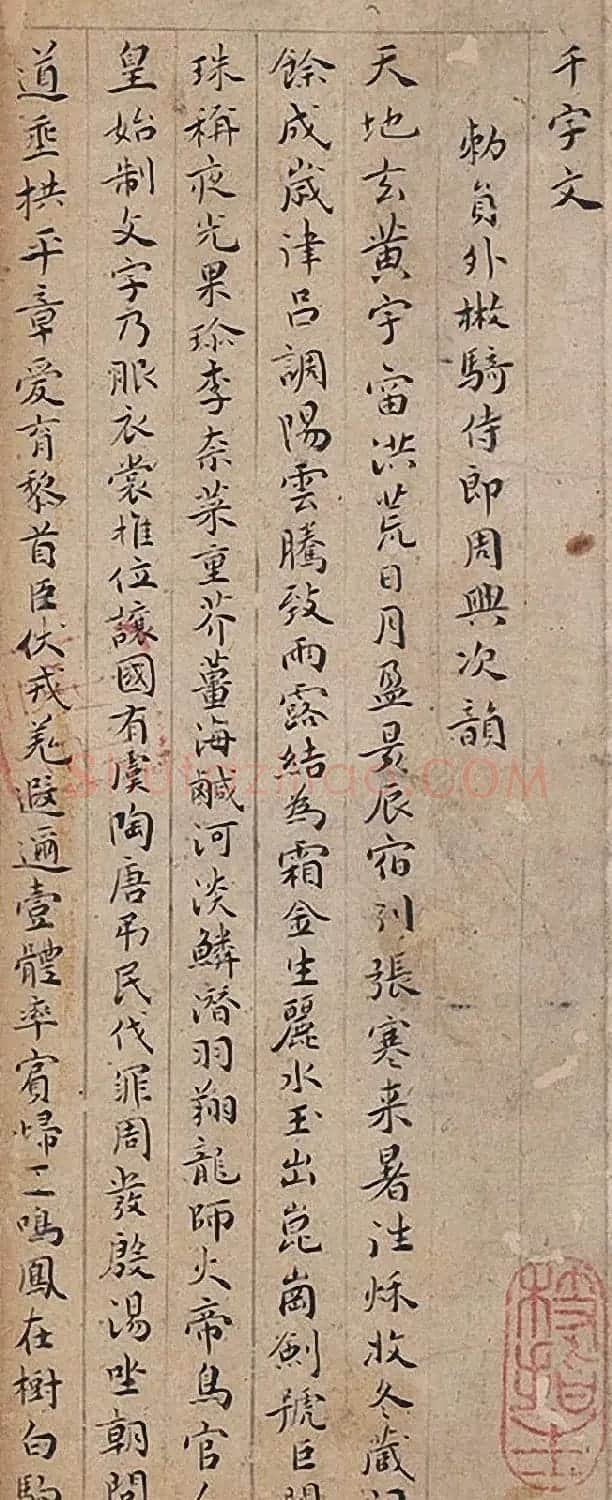 千字文
勑員外散騎侍郎周興次韻
天地玄黃宇宙洪荒日月盈昃辰宿列張寒来暑往秌收冬藏
餘成歲律呂調陽雲騰致雨露結為霜金生麗水玉出崑崗劍號巨
珠稱夜光果珎李柰菜重芥薑海鹹河淡鱗潛羽翔龍師火帝鳥官
皇始制文字乃服衣裳推位讓國有虞陶唐弔民伐罪周發殷湯坐朝問
道垂拱平章愛育黎首臣伏戎羌遐邇壹體率賓歸王鳴鳳在樹白駒